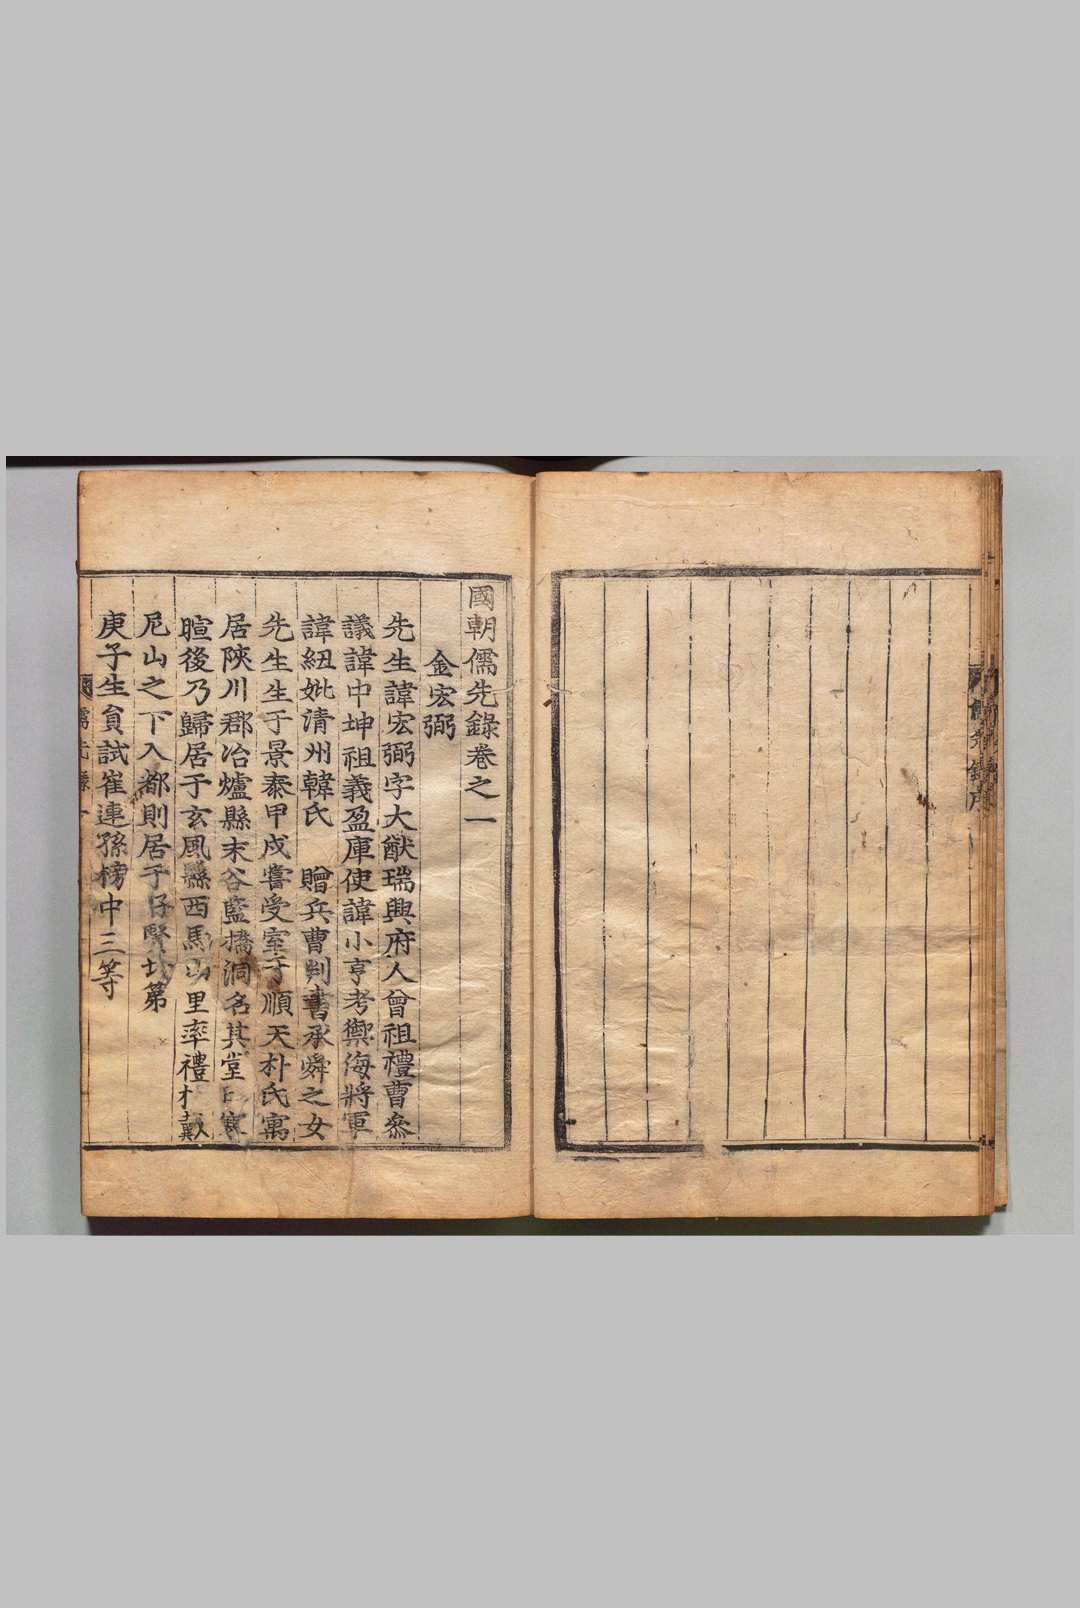 國朝儒先錄卷之一
金宏弼
先生諱宏弼字大猷瑞興府人曾祖禮曹叅
議諱中坤祖義盈庫使諱小亨考禦侮將軍
諱紐妣清州韓氏 贈兵曹判書承舜之女
先生生于景泰甲戌嘗受室于順天朴氏寓
居陜川郡冶爐縣末谷藍橋洞名其堂曰寒
暄後乃歸居于玄風縣西馬山里率禮村戴
尼山之下入都則居于好賢坊第
庚子生貟試崔連孫榜中三等